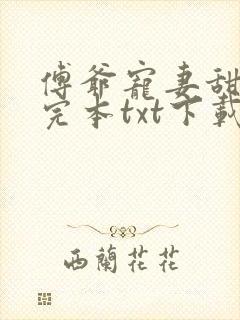 傅爺寵妻甜
完本txt下載
西蘭花花